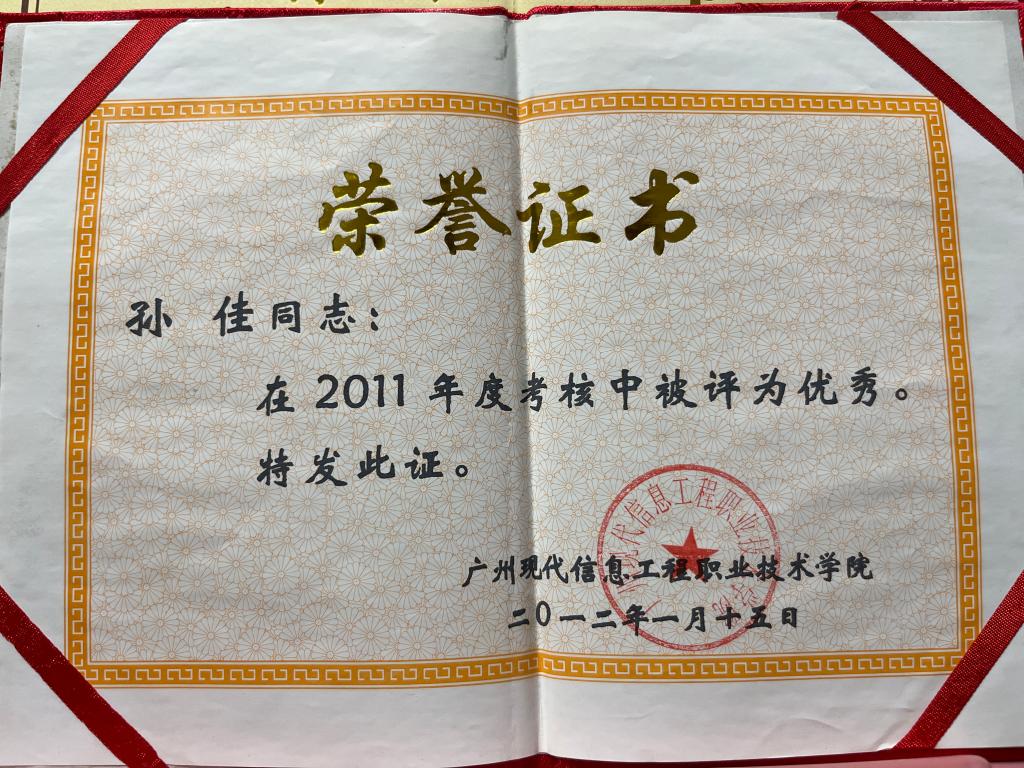 荣誉证书
孙 佳同志：
在 2011 年度考核中被评为优秀。
特发此证。
广州现代信息工程职业技术学院
二〇一二年一月十五日